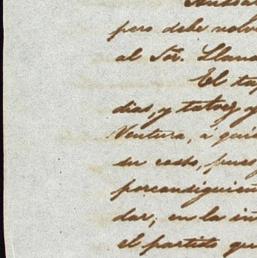 pero debe volv
al Sor. Llan
El ta
dias, y talvez y
Ventura, á quie
su costo, pues
porconsiguien
dar; en la in
el partido que